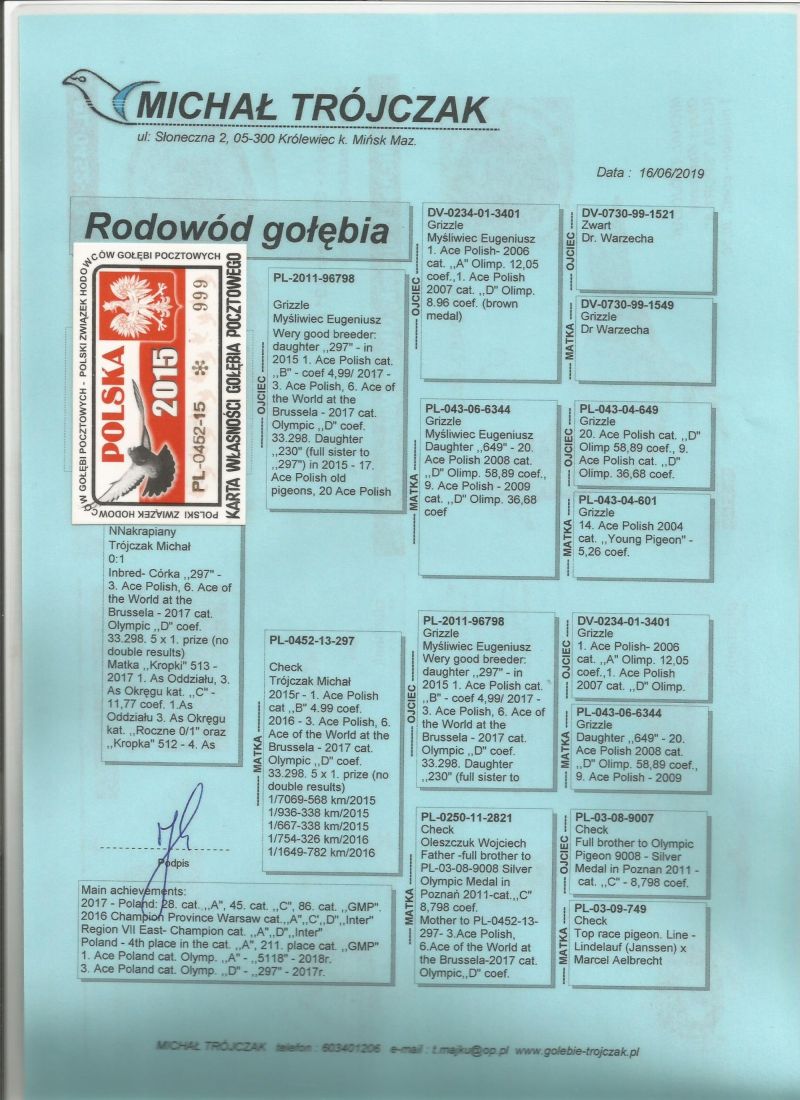 MICHAŁ TRÓJCZAK
ul: Słoneczna 2, 05-300 Królewiec k. Mińsk Maz.
Data : 16/06/2019
Rodowód gołębia
POLSKI ZWIĄZEK HODOWCÓW GOŁĘBI POCZTOWYCH - POLSKI ZWIĄZEK HODOWCÓW GOŁĘBI POCZTOWYCH
POLSKA
2015
PL-0452-15 * 999
KARTA WŁASNOŚCI GOŁĘBIA POCZTOWEGO
NNakrapiany
Trójczak Michał
0:1
Inbred- Córka ,,297" -
3. Ace Polish, 6. Ace of
the World at the
Brussela - 2017 cat.
Olympic ,,D" coef.
33.298. 5 x 1. prize (no
double results)
Matka ,,Kropki" 513 -
2017 1. As Oddziału, 3.
As Okręgu kat. ,,C" -
11,77 coef. 1.As
Oddziału 3. As Okręgu
kat. ,,Roczne 0/1" oraz
,,Kropka" 512 - 4. As
---- OJCIEC ----
PL-2011-96798
Grizzle
Myśliwiec Eugeniusz
Wery good breeder:
daughter ,,297" - in
2015 1. Ace Polish cat.
,,B" - coef 4,99/ 2017 -
3. Ace Polish, 6. Ace of
the World at the
Brussela - 2017 cat.
Olympic ,,D" coef.
33.298. Daughter
,,230" (full sister to
,,297") in 2015 - 17.
Ace Polish old
pigeons, 20 Ace Polish
---- MATKA ----
PL-0452-13-297
Check
Trójczak Michał
2015r - 1. Ace Polish
cat ,,B" 4.99 coef.
2016 - 3. Ace Polish, 6.
Ace of the World at the
Brussela - 2017 cat.
Olympic ,,D" coef.
33.298. 5 x 1. prize (no
double results)
1/7069-568 km/2015
1/936-338 km/2015
1/667-338 km/2015
1/754-326 km/2016
1/1649-782 km/2016
---- OJCIEC ----
DV-0234-01-3401
Grizzle
Myśliwiec Eugeniusz
1. Ace Polish- 2006
cat. ,,A" Olimp. 12,05
coef.,1. Ace Polish
2007 cat. ,,D" Olimp.
8.96 coef. (brown
medal)
---- MATKA ----
PL-043-06-6344
Grizzle
Myśliwiec Eugeniusz
Daughter ,,649" - 20.
Ace Polish 2008 cat.
,,D" Olimp 58,89 coef.,
9. Ace Polish - 2009
cat. ,,D" Olimp. 36,68
coef
---- OJCIEC ----
PL-2011-96798
Grizzle
Myśliwiec Eugeniusz
Wery good breeder:
daughter ,,297" - in
2015 1. Ace Polish cat.
,,B" - coef 4,99/ 2017 -
3. Ace Polish, 6. Ace of
the World at the
Brussela - 2017 cat.
Olympic ,,D" coef.
33.298. Daughter
,,230" (full sister to
---- MATKA ----
PL-0250-11-2821
Check
Oleszczuk Wojciech
Father -full brother to
PL-03-08-9008 Silver
Olympic Medal in
Poznań 2011-cat.,,C"
8,798 coef.
Mother to PL-0452-13-
297- 3.Ace Polish,
6.Ace of the World at
the Brussela-2017 cat.
Olympic,,D" coef.
---- OJCIEC ----
DV-0730-99-1521
Zwart
Dr. Warzecha
---- MATKA ----
DV-0730-99-1549
Grizzle
Dr Warzecha
---- OJCIEC ----
PL-043-04-649
Grizzle
20. Ace Polish cat. ,,D"
Olimp 58,89 coef., 9.
Ace Polish cat. ,,D"
Olimp. 36,68 coef.
---- MATKA ----
PL-043-04-601
Grizzle
14. Ace Polish 2004
cat. ,,Young Pigeon" -
5,26 coef.
---- OJCIEC ----
DV-0234-01-3401
Grizzle
1. Ace Polish- 2006
cat. ,,A" Olimp. 12,05
coef.,1. Ace Polish
2007 cat. ,,D" Olimp.
---- MATKA ----
PL-043-06-6344
Grizzle
Daughter ,,649" - 20.
Ace Polish 2008 cat.
,,D" Olimp 58,89 coef.,
9. Ace Polish - 2009
---- OJCIEC ----
PL-03-08-9007
Check
Full brother to Olympic
Pigeon 9008 - Silver
Medal in Poznan 2011 -
cat. ,,C" - 8,798 coef.
---- MATKA ----
PL-03-09-749
Check
Top race pigeon. Line -
Lindelauf (Janssen) x
Marcel Aelbrecht
Podpis
Main achievements:
2017 - Poland: 28. cat. ,,A", 45. cat. ,,C", 86. cat. ,,GMP".
2016 Champion Province Warsaw cat.,,A",,C',,D",,Inter"
Region VII East- Champion cat. ,,A",,D",,Inter"
Poland - 4th place in the cat. ,,A", 211. place cat. ,,GMP"
1. Ace Poland cat. Olymp. ,,A" - ,,5118" - 2018r.
3. Ace Poland cat. Olymp. ,,D" - ,,297" - 2017r.
MICHAŁ TRÓJCZAK telefon : 603401206 e-mail : t.majku@op.pl www.golebie-trojczak.pl